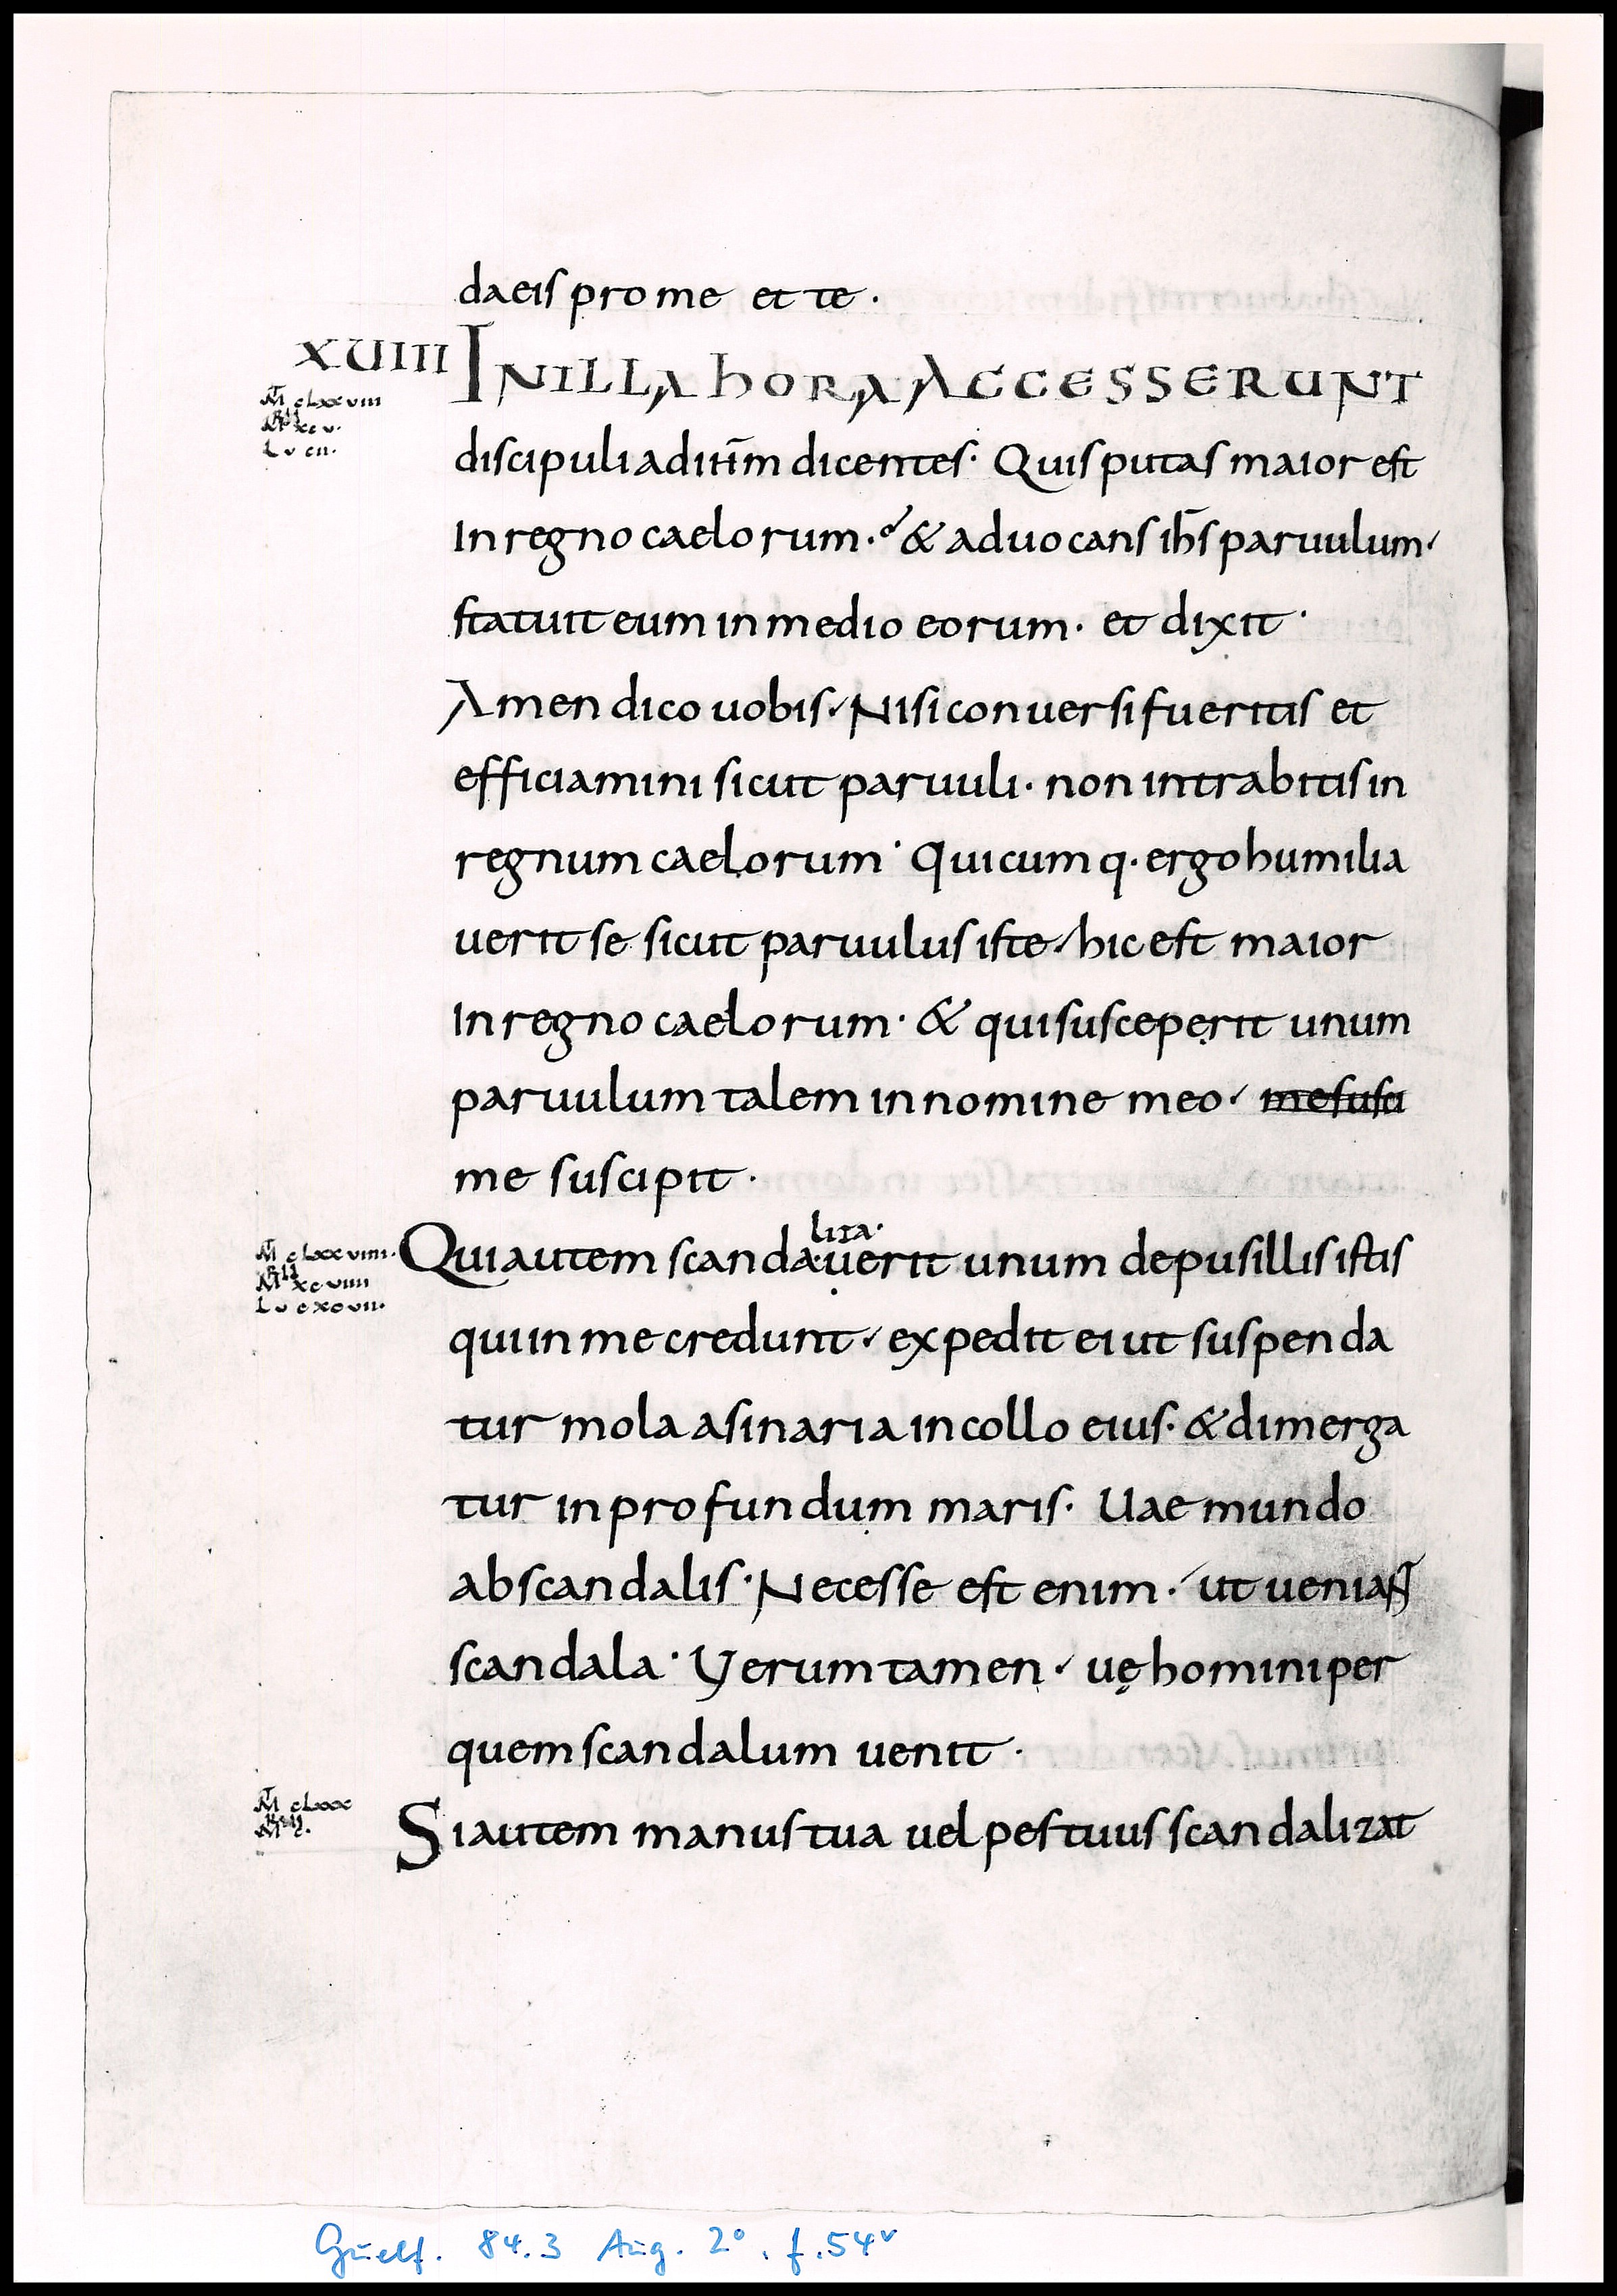 da eis pro me et te ·
XUIIII IN ILLA hORA ACCESSERUNT
M clxxviii
MR xcv ·
Lu cii ·
discipuli ad ihm̄ dicentes · Quis putas maior est
In regno caelorum · & aduocans ihs̄ paruulum ·
statuit eum in medio eorum · et dixit ·
Amen dico uobis · Nisi conuersi fueritis et
efficiamini sicut paruuli · non intrabitis in
regnum caelorum · Quicumq · ergo humilia
uerit se sicut paruulus iste · hic est maior
In regno caelorum · & qui susceperit unum
paruulum talem in nomine meo · me susci
me suscipit ·
liza ·
Qui autem scanda·uerit unum de pusillis istis
M clxxviiii ·
MR xcviiii
Lu cxcvii ·
qui in me credunt · expedit ei ut suspenda
tur mola asinaria in collo eius · & dimerga
tur in profundum maris · Uae mundo
ab scandalis · Necesse est enim · ut ueniant
scandala · Uerum tamen · uę homini per
quem scandalum uenit ·
M clxxx
MR c ·
Si autem manus tua uel pes tuus scandalizat
Guelf. 84.3 Aug. 2°, f. 54v